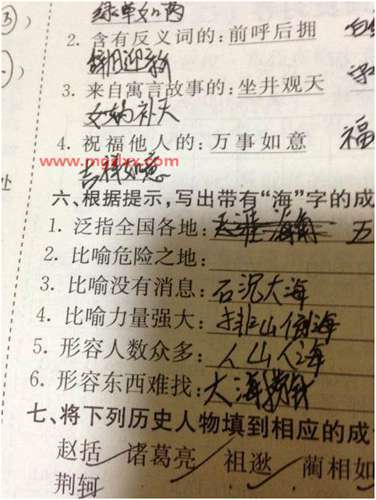 绿草如茵
2. 含有反义词的：前呼后拥
辞旧迎新
3. 来自寓言故事的：坐井观天
女娲补天
www.mgzbzx.com
4. 祝福他人的：万事如意 福
吉祥如意
处
六、根据提示，写出带有“海”字的成
1. 泛指全国各地：天涯海角 五
2. 比喻危险之地：
3. 比喻没有消息：石沉大海
4. 比喻力量强大：排山倒海
5. 形容人数众多：人山人海
6. 形容东西难找：大海捞针
七、将下列历史人物填到相应的成
赵括 诸葛亮 祖逖 蔺相如
荆轲